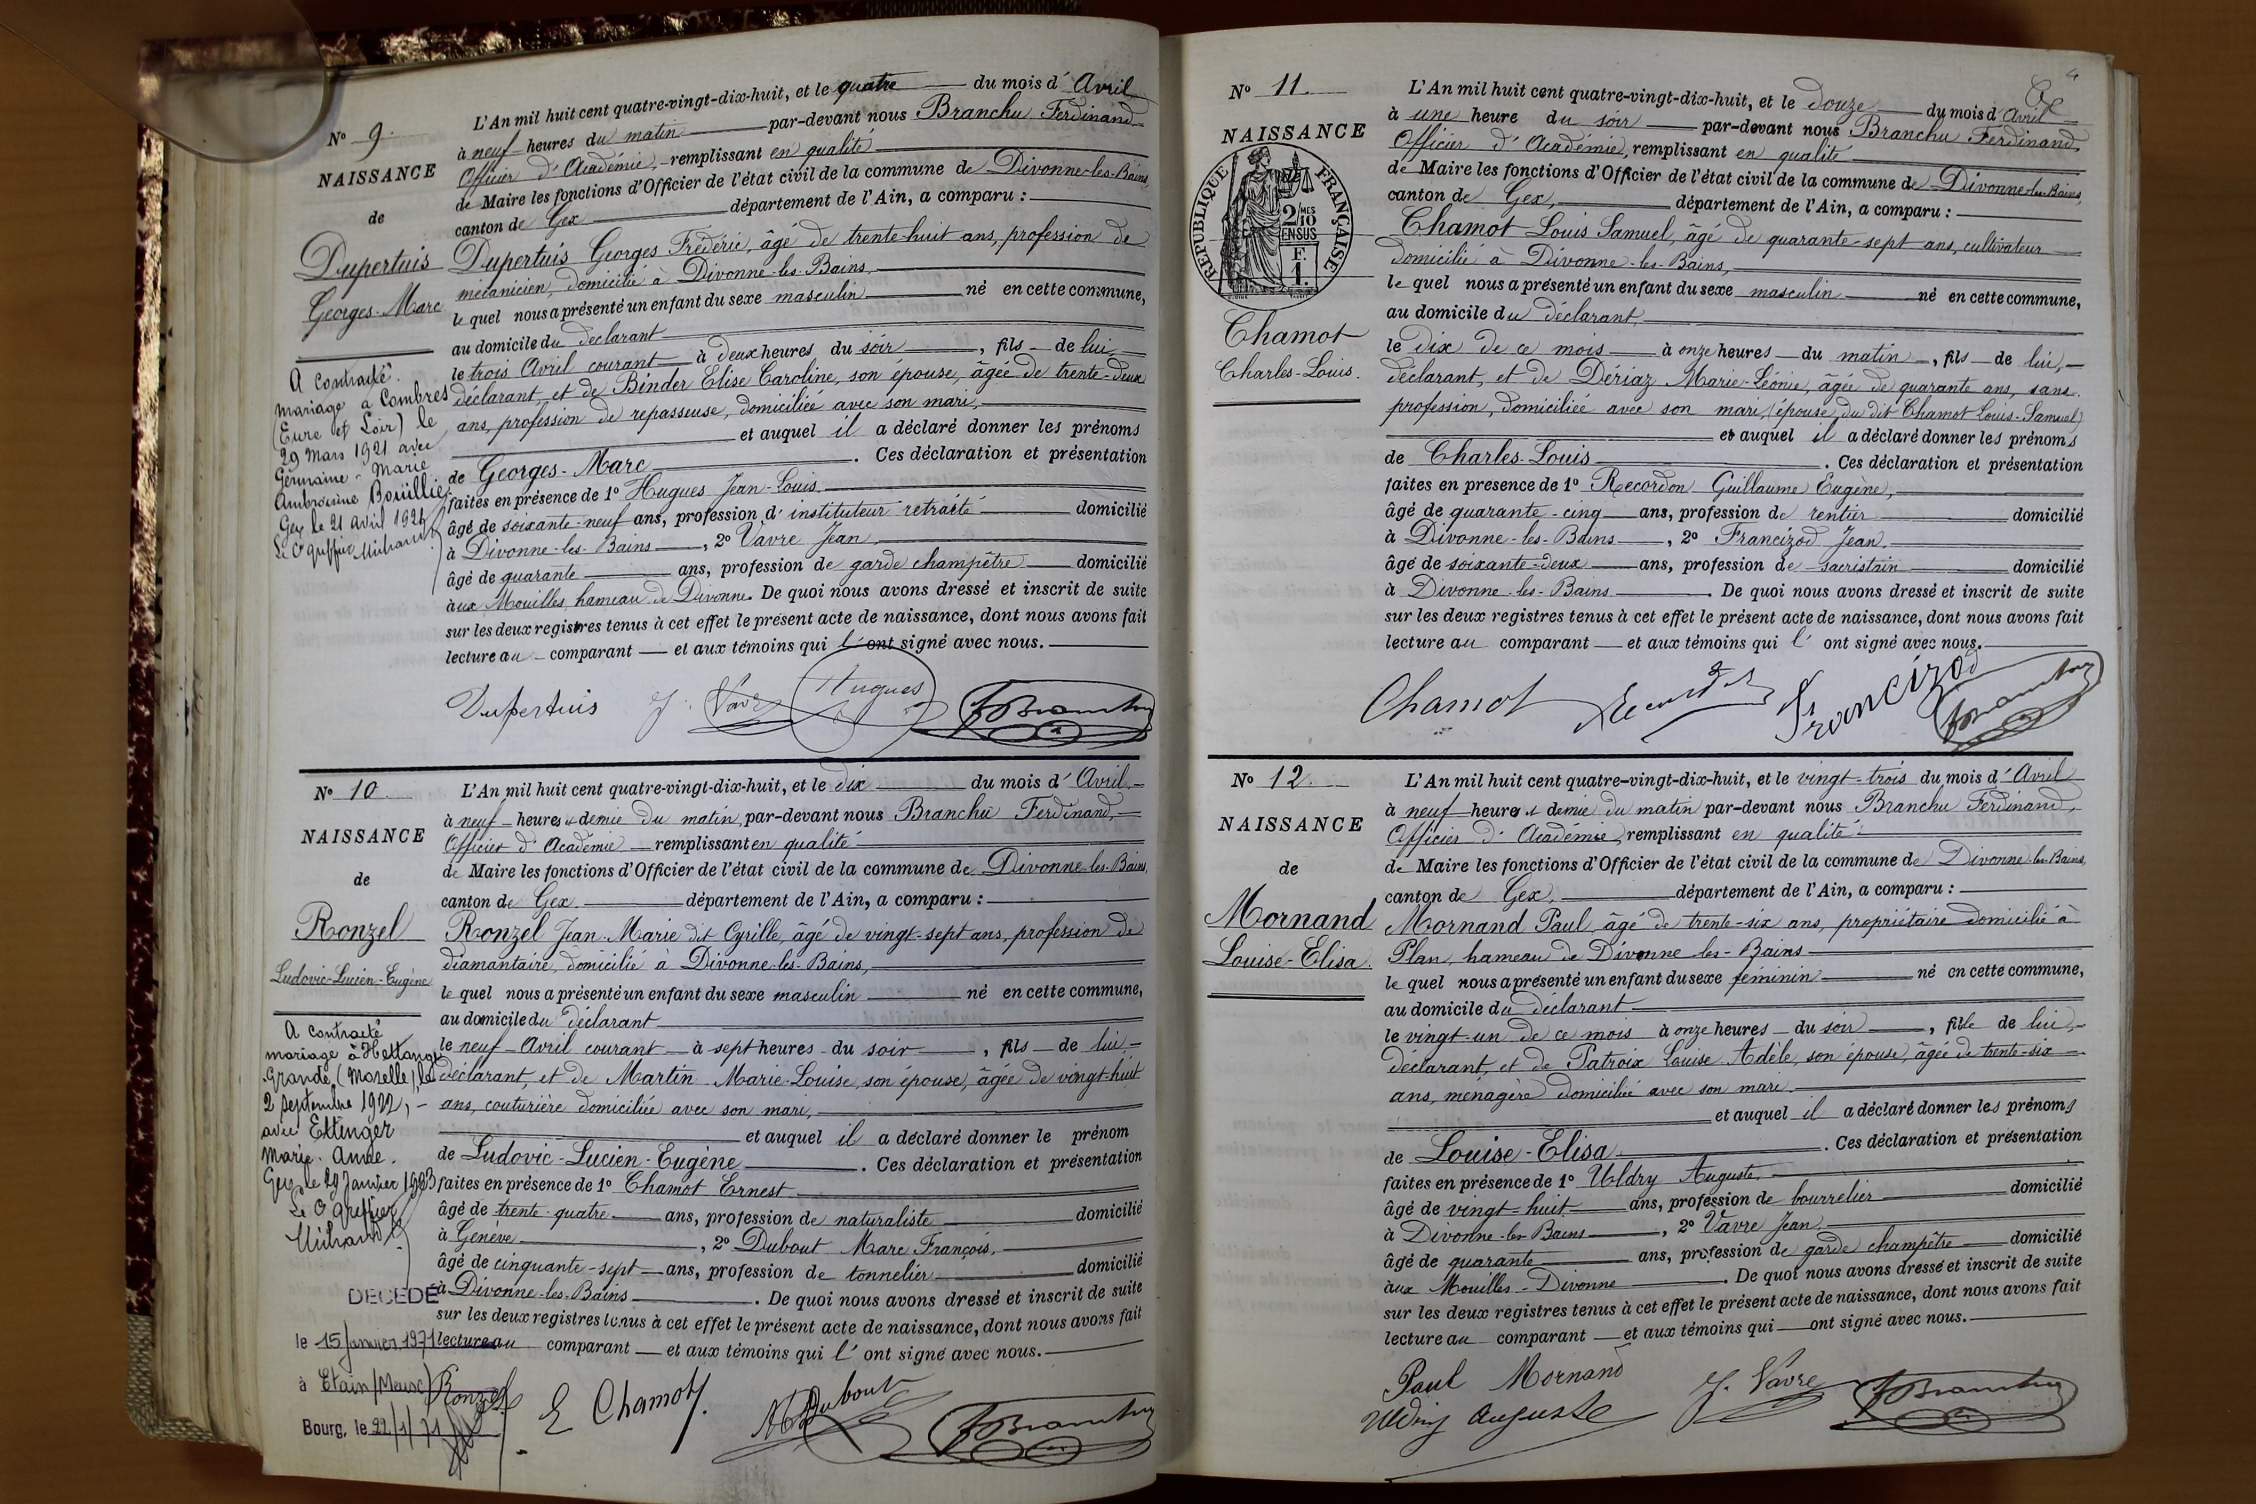 N° 9
NAISSANCE
de
Dupertuis
Georges-Marc
A contracté
mariage à Combres
(Eure et Loir) le
29 Mars 1921 avec
Germaine-Marie
Ambroisine Bouillie
Gex le 21 avril 1921
L'An mil huit cent quatre-vingt-dix-huit, et le quatre du mois d'Avril
à neuf heures du matin par-devant nous Branchu Ferdinand
Officier d'Académie, remplissant en qualité
de Maire les fonctions d'Officier de l'état civil de la commune de Divonne-les-Bains
canton de Gex département de l'Ain, a comparu :
Dupertuis Georges Frédéric, âgé de trente-huit ans, profession de
mécanicien, domicilié à Divonne-les-Bains,
le quel nous a présenté un enfant du sexe masculin né en cette commune,
au domicile du déclarant
le trois Avril courant à deux heures du soir, fils de lui,
déclarant, et de Binder Elise Caroline, son épouse, âgée de trente-deux
ans, profession de repasseuse, domiciliée avec son mari,
et auquel il a déclaré donner les prénoms
de Georges-Marc. Ces déclaration et présentation
faites en présence de 1° Hugues Jean-Louis
âgé de soixante-neuf ans, profession d'instituteur retraité domicilié
à Divonne-les-Bains, 2° Vavre Jean
âgé de quarante ans, profession de garde champêtre domicilié
aux Mouilles, hameau de Divonne. De quoi nous avons dressé et inscrit de suite
sur les deux registres tenus à cet effet le présent acte de naissance, dont nous avons fait
lecture au comparant et aux témoins qui l'ont signé avec nous.
Dupertuis J. Vavre Hugues FBranchu
N° 10
NAISSANCE
de
Ronzel
Ludovic-Lucien-Eugène
A contracté
mariage à Hettange
Grande (Moselle) le
2 septembre 1922,
avec Ettinger
Marie-Anne.
Gex le 29 Janvier 1923
Le Greffier
Michaud
DECEDÉ
le 15 Janvier 1971
à Etain (Meuse)
Bourg, le 22/1/71
L'An mil huit cent quatre-vingt-dix-huit, et le dix du mois d'Avril
à neuf heures & demie du matin, par-devant nous Branchu Ferdinand,
Officier d'Académie remplissant en qualité
de Maire les fonctions d'Officier de l'état civil de la commune de Divonne-les-Bains,
canton de Gex département de l'Ain, a comparu :
Ronzel Jean-Marie dit Cyrille, âgé de vingt-sept ans, profession de
diamantaire, domicilié à Divonne-les-Bains,
le quel nous a présenté un enfant du sexe masculin né en cette commune,
au domicile du déclarant
le neuf Avril courant à sept heures du soir, fils de lui
déclarant, et de Martin Marie-Louise, son épouse, âgée de vingt-huit
ans, couturière domiciliée avec son mari,
et auquel il a déclaré donner le prénom
de Ludovic-Lucien-Eugène. Ces déclaration et présentation
faites en présence de 1° Chamot Ernest
âgé de trente-quatre ans, profession de naturaliste domicilié
à Genève, 2° Dubout Marc François,
âgé de cinquante-sept ans, profession de tonnelier domicilié
à Divonne-les-Bains. De quoi nous avons dressé et inscrit de suite
sur les deux registres tenus à cet effet le présent acte de naissance, dont nous avons fait
lecture au comparant et aux témoins qui l'ont signé avec nous.
Ronzel E Chamot Dubout FBranchu
N° 11
NAISSANCE
REPUBLIQUE FRANÇAISE
2/10MES
EN SUS
F.
1.
Chamot
Charles-Louis.
L'An mil huit cent quatre-vingt-dix-huit, et le douze du mois d'Avril
à une heure du soir par-devant nous Branchu Ferdinand,
Officier d'Académie, remplissant en qualité
de Maire les fonctions d'Officier de l'état civil de la commune de Divonne-les-Bains,
canton de Gex, département de l'Ain, a comparu :
Chamot Louis Samuel, âgé de quarante-sept ans, cultivateur
domicilié à Divonne-les-Bains,
le quel nous a présenté un enfant du sexe masculin né en cette commune,
au domicile du déclarant
le dix de ce mois à onze heures du matin, fils de lui,
déclarant, et de Dériaz Marie-Léonie, âgée de quarante ans, sans
profession, domiciliée avec son mari, (épouse du dit Chamot Louis-Samuel)
et auquel il a déclaré donner les prénoms
de Charles-Louis. Ces déclaration et présentation
faites en présence de 1° Recordon Guillaume Eugène,
âgé de quarante-cinq ans, profession de rentier domicilié
à Divonne-les-Bains, 2° Francizod Jean
âgé de soixante-deux ans, profession de sacristain domicilié
à Divonne-les-Bains. De quoi nous avons dressé et inscrit de suite
sur les deux registres tenus à cet effet le présent acte de naissance, dont nous avons fait
lecture au comparant et aux témoins qui l'ont signé avec nous.
Chamot Recordon Francizod FBranchu
N° 12
NAISSANCE
de
Mornand
Louise-Elisa.
L'An mil huit cent quatre-vingt-dix-huit, et le vingt-trois du mois d'Avril
à neuf heures & demie du matin par-devant nous Branchu Ferdinand,
Officier d'Académie, remplissant en qualité
de Maire les fonctions d'Officier de l'état civil de la commune de Divonne-les-Bains,
canton de Gex, département de l'Ain, a comparu :
Mornand Paul, âgé de trente-six ans, propriétaire domicilié à
Plan, hameau de Divonne-les-Bains
le quel nous a présenté un enfant du sexe féminin né en cette commune,
au domicile du déclarant
le vingt-un de ce mois à onze heures du soir, fille de lui,
déclarant, et de Patroix Louise Adèle, son épouse, âgée de trente-six
ans, ménagère domiciliée avec son mari.
et auquel il a déclaré donner les prénoms
de Louise-Elisa. Ces déclaration et présentation
faites en présence de 1° Uldry Auguste
âgé de vingt-huit ans, profession de bourrelier domicilié
à Divonne-les-Bains, 2° Vavre Jean
âgé de quarante ans, profession de garde champêtre domicilié
aux Mouilles-Divonne. De quoi nous avons dressé et inscrit de suite
sur les deux registres tenus à cet effet le présent acte de naissance, dont nous avons fait
lecture au comparant et aux témoins qui ont signé avec nous.
Paul Mornand J. Vavre FBranchu
Uldry Auguste